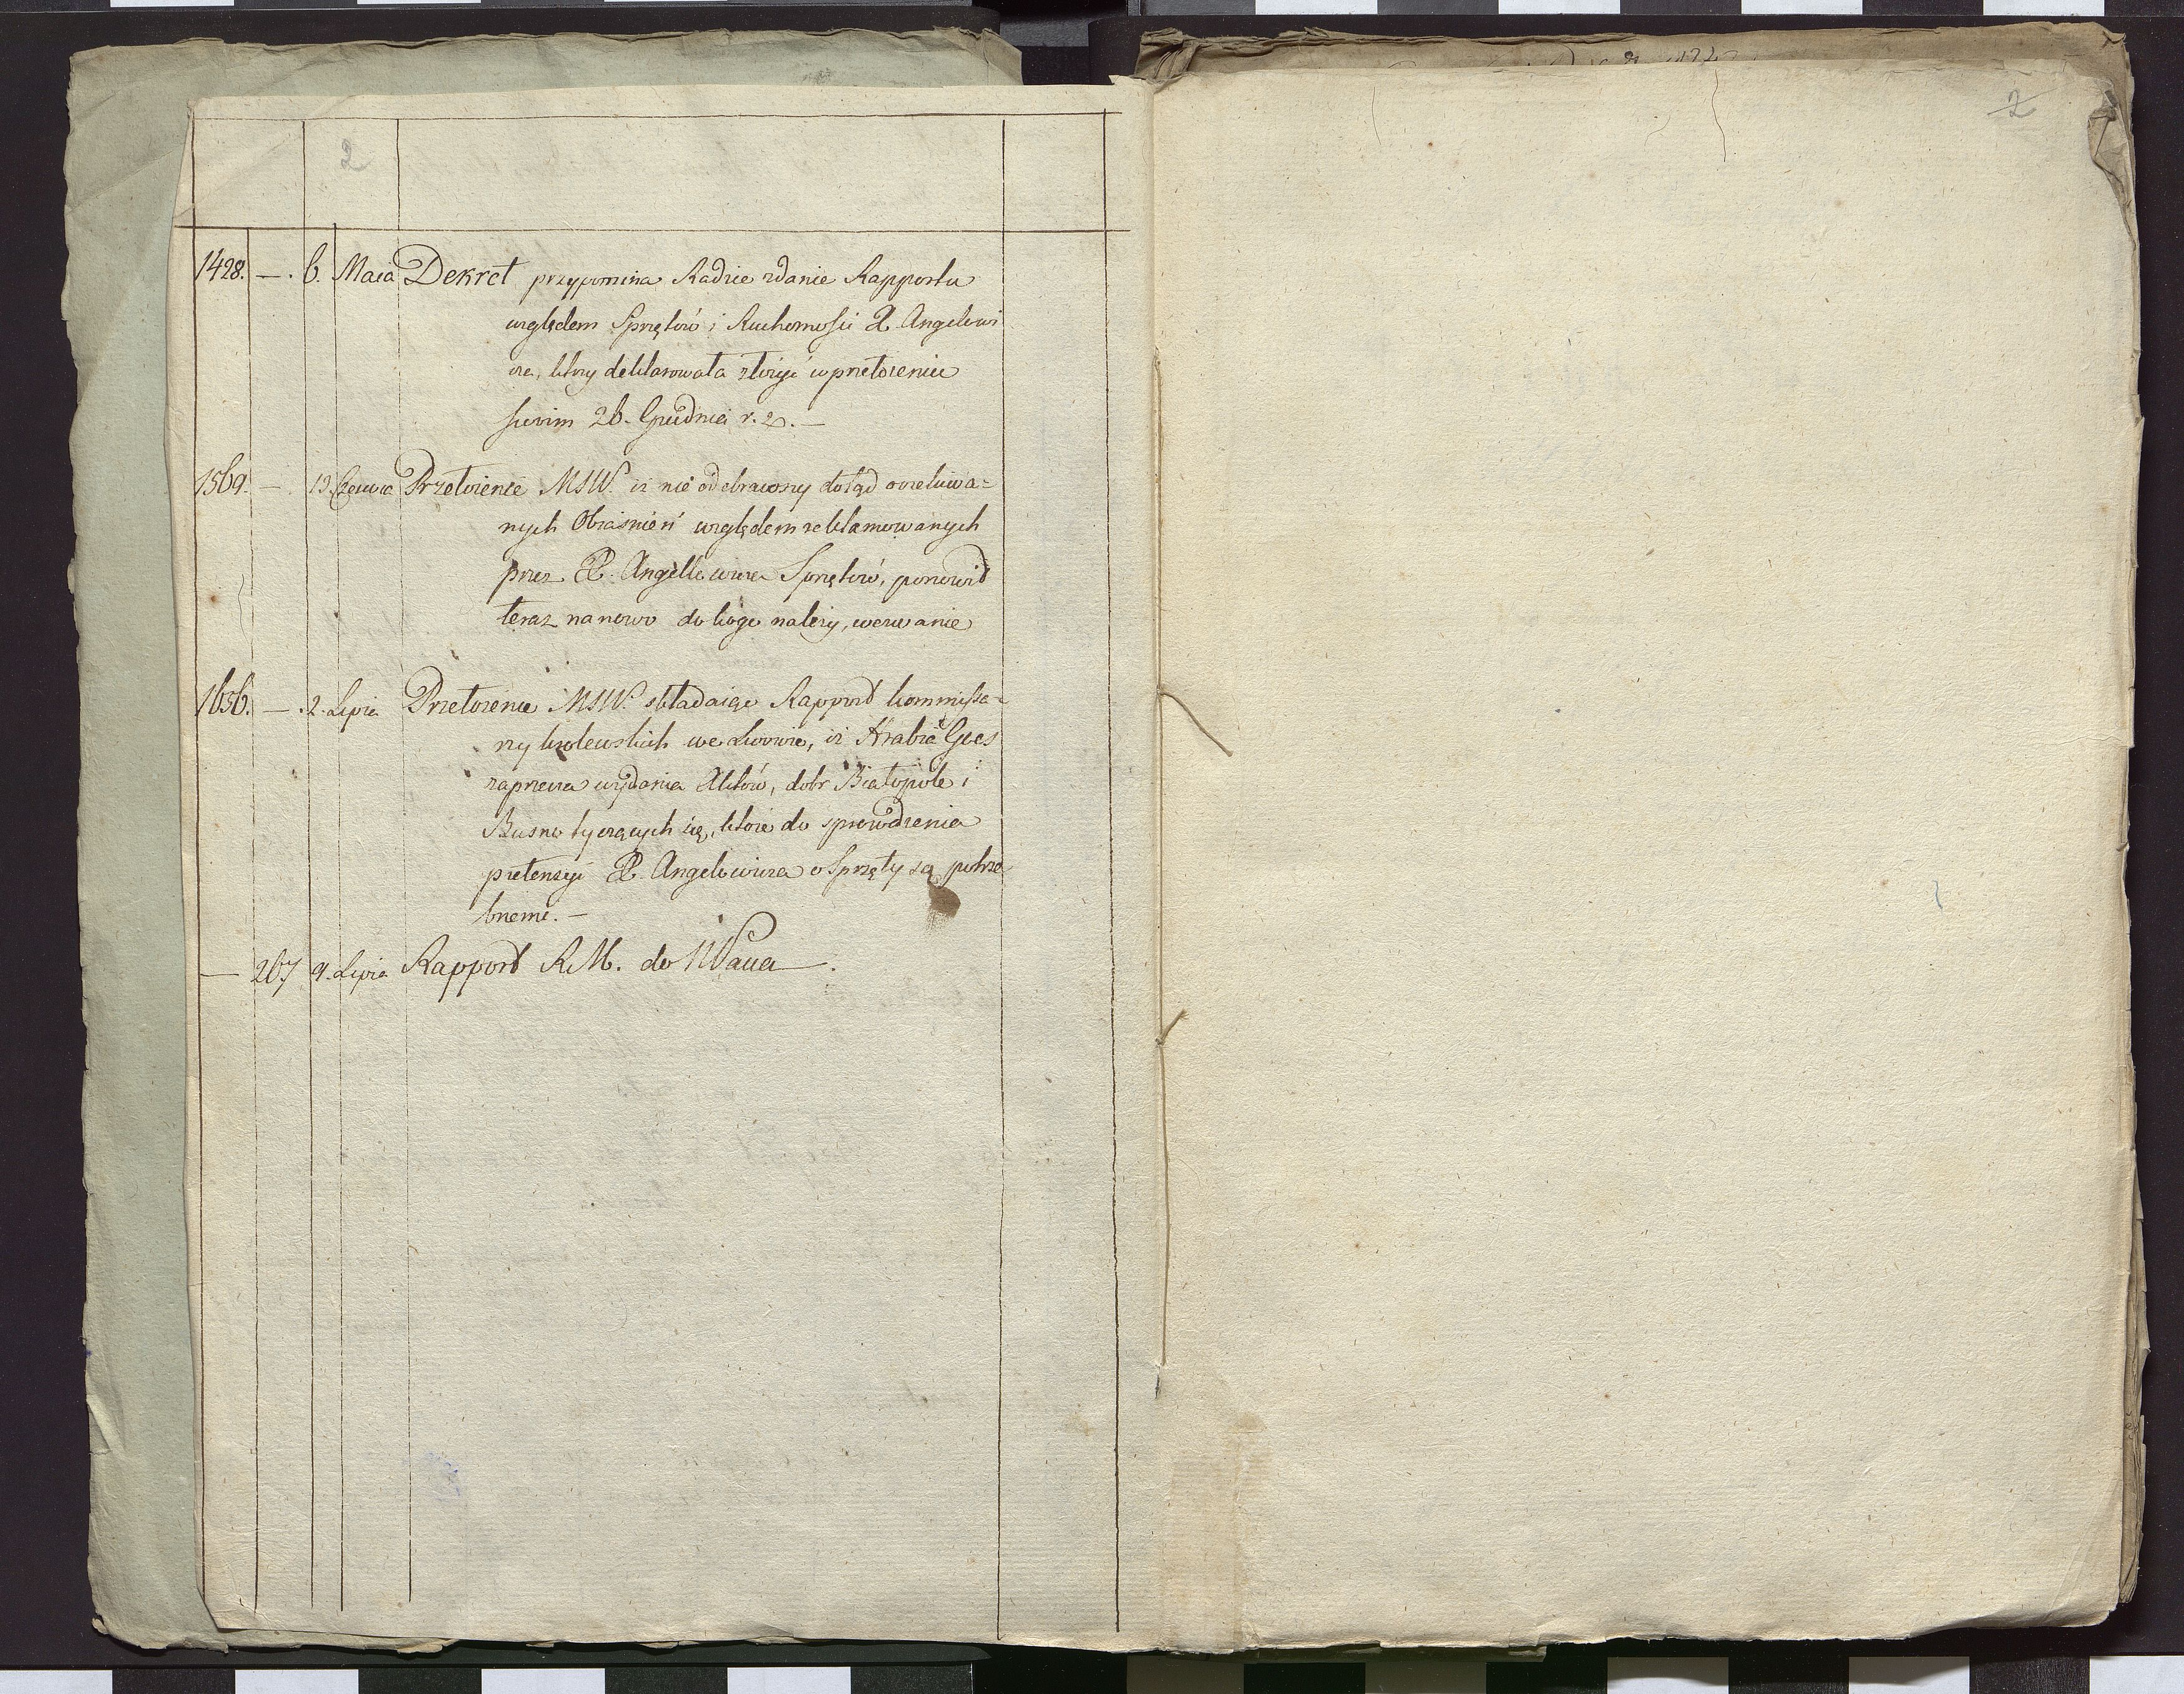 2
2
1428. — . 6. Maia Dekret przypomina Radzie zdanie Rapportu
względem Sprzętów i Ruchomości X. Angelowi
cza, który deklarowała złożyć w przełożeniu
swoim 26. Grudnia r. z. —
1569. — 13. Czerwca Przełożenie MSW. iż nie odebrawszy dotąd oczekiwa=
nych Obiaśnień względem reklamowanych
przez X. Angellowicza Sprzętów, ponowił
teraz na nowo do kogo należy, wezwanie
1656. — . 2. Lipca Przełożenie MSW. składaiąc Rapport kommissa=
rzy królewskich we Lwowie, iż Hrabia Goes
zaprzecza wydania Aktów, dobr Białopole i
Busno tyczących się, które do sprowdzenia
pretensyi X. Angelowicza o Sprzęty są potrze
bnemi. —
— 267 9. Lipca Rapport RM. do NPana —.